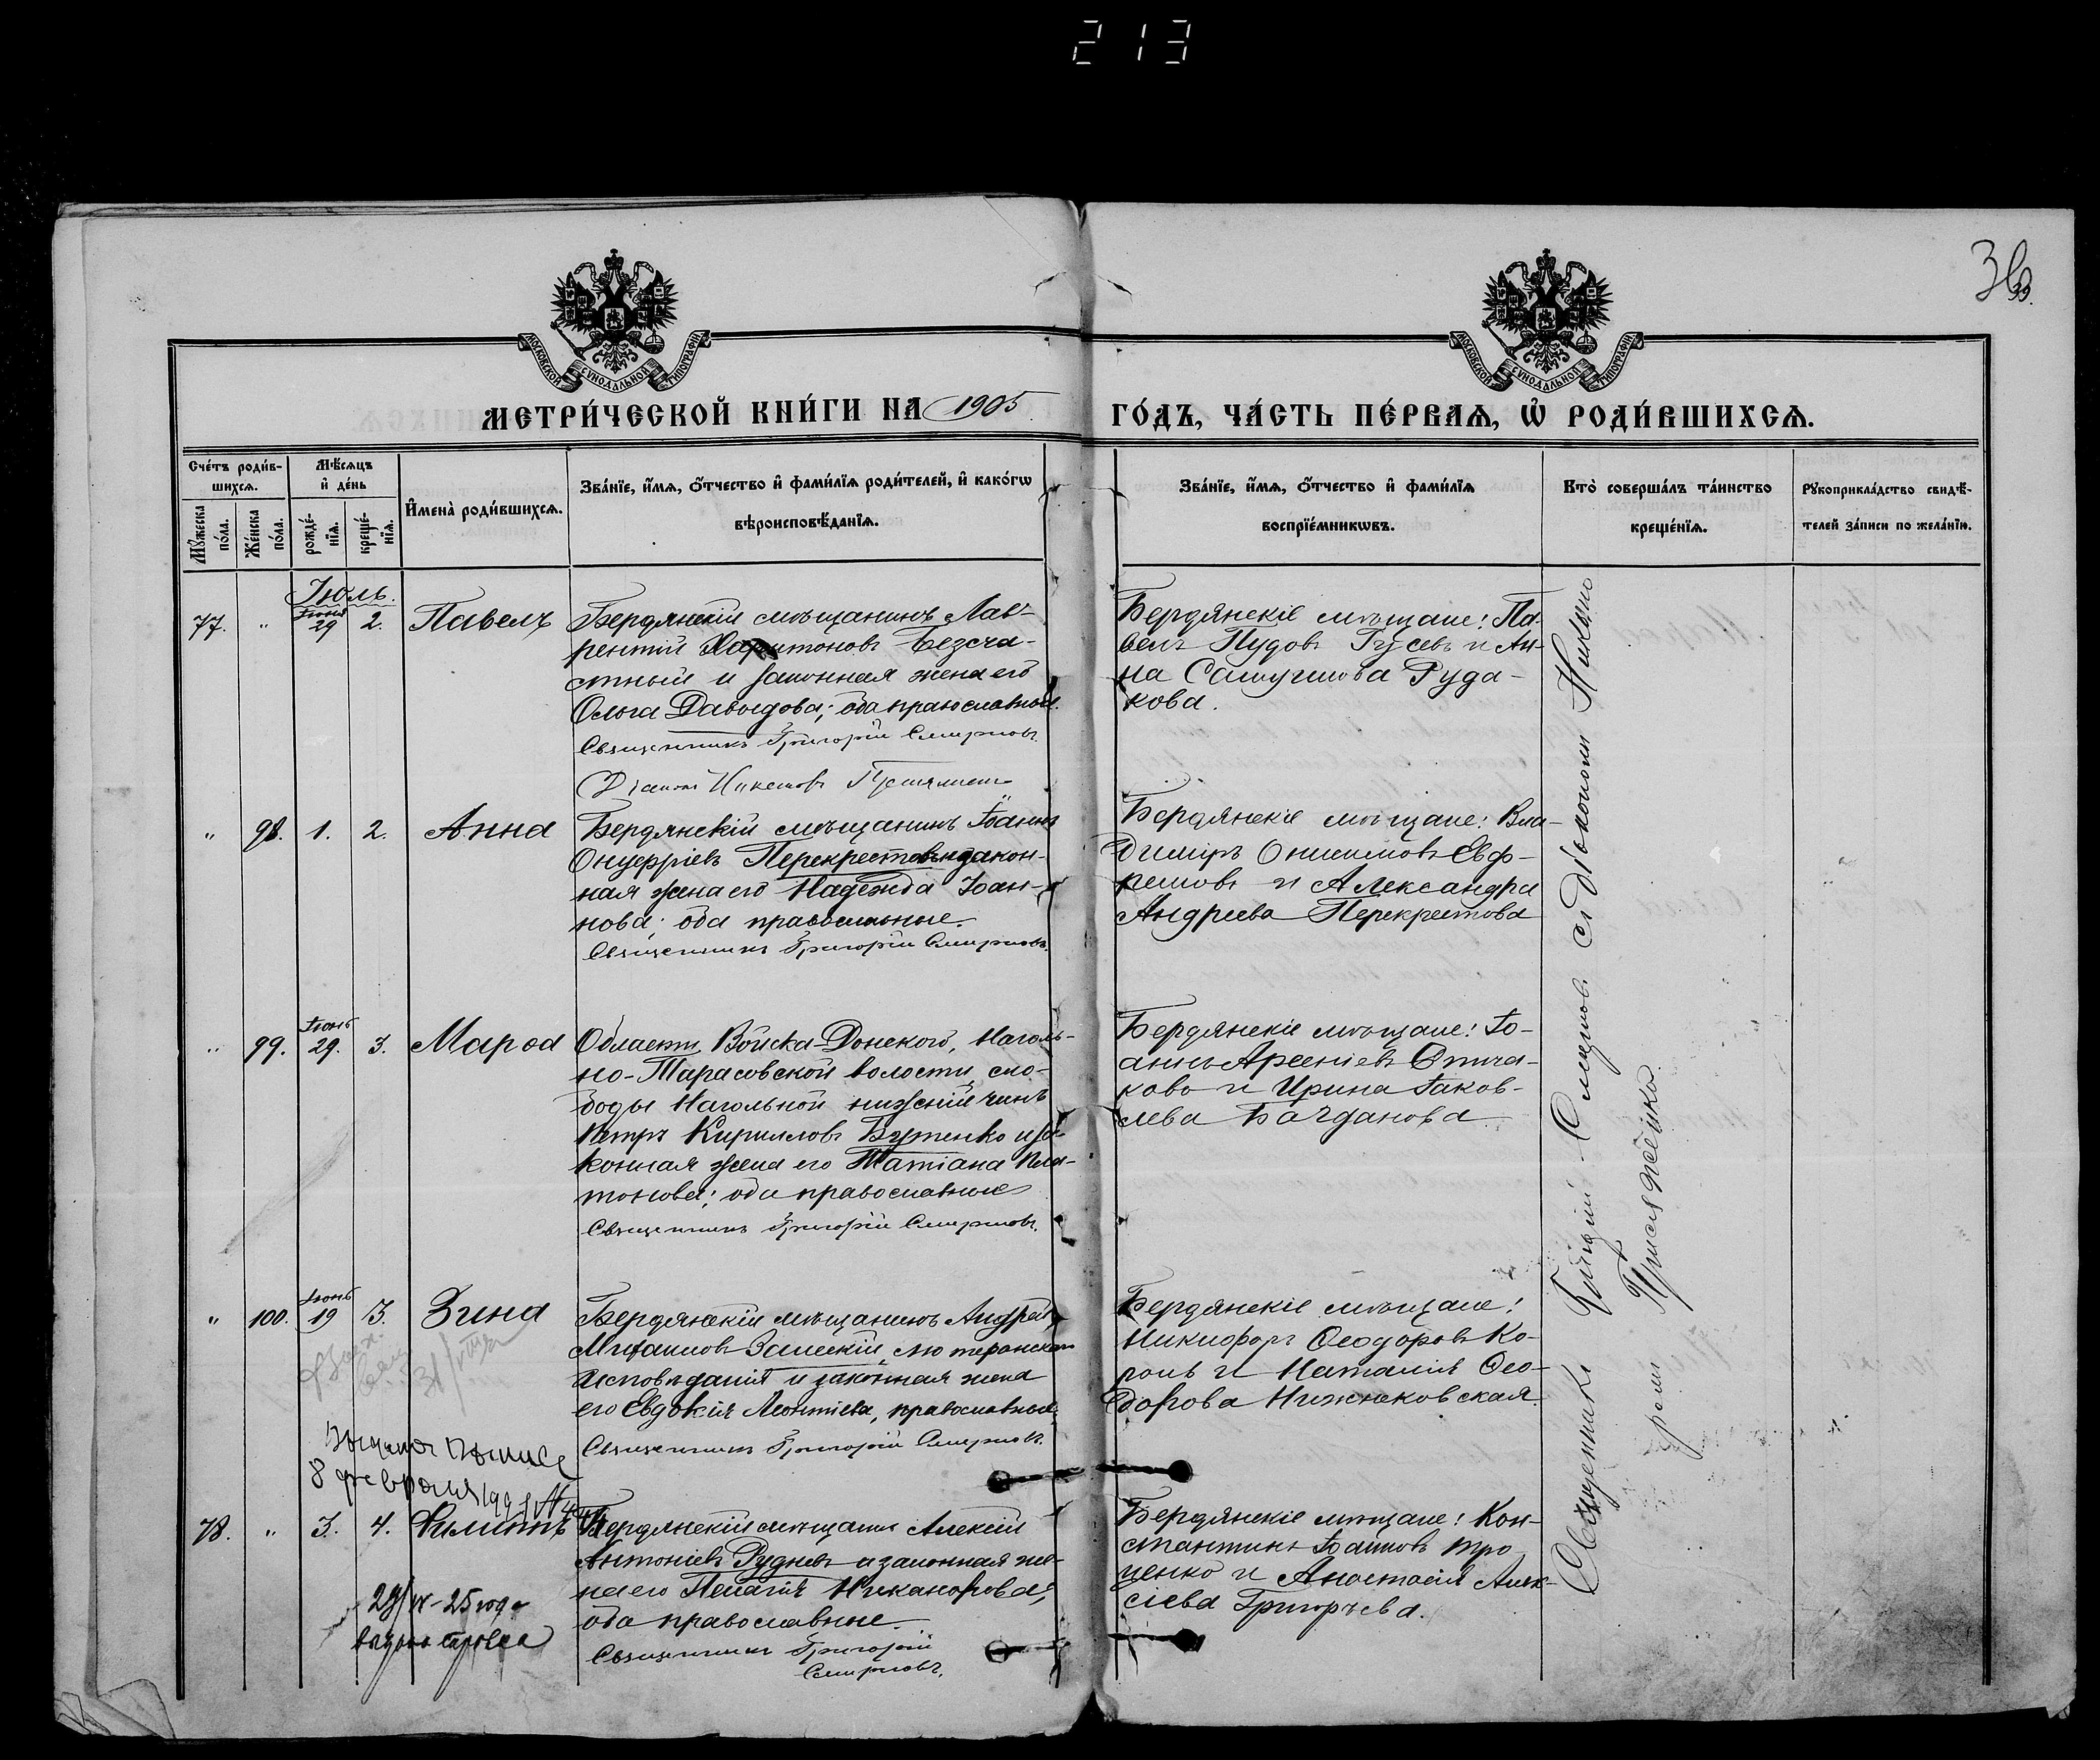 213
МОСКОВСКОЙ СѴНОДАЛЬНОЙ ТИПОГРАФІИ
МОСКОВСКОЙ СѴНОДАЛЬНОЙ ТИПОГРАФІИ
МЕТРИ́ЧЕСКОЙ КНИ́ГИ НА 1905
ГО́ДЪ, ЧА́СТЬ ПЕ́РВАѦ, Ѡ҆ РОДИ́ВШИХСѦ.
Сче́тъ роди́в-
шихсѧ.
Мꙋ́жеска по́ла.
Же́нска по́ла.
Мѣ́сѧцъ
и҆ де́нь
рожде́-
нїѧ.
креще́-
нїѧ.
И҆мена̀ роди́вшихсѧ.
Зва́нїе, и҆́мѧ, ѻ҆́тчество и҆ фами́лїѧ роди́телей, и҆ како́гѡ
вѣроисповѣ́данїѧ.
Зва́нїе, и҆́мѧ, ѻ҆́тчество и҆ фами́лїѧ
воспрїе́мникѡвъ.
Кто̀ соверша́лъ та́инство
креще́нїѧ.
Рꙋкоприкла́дство свидѣ́-
телей за́писи по жела́нїю.
Іюль.
77. " Іюня 29 2. Павелъ
Бердянскій мѣщанинъ Лав-
рентій Харитоновъ Безсча-
стный и законная жена его
Ольга Давыдова; оба православные.
Священникъ Григорій Смирновъ.
Діаконъ
Бердянскіе мѣщане: Па-
велъ Пудовъ Гусевъ и Ан-
на Руда-
кова.
" 98. 1. 2. Анна
Бердянскій мѣщанинъ Іоаннъ
Онуфріевъ Перекрестовъ и закон-
ная жена его Надежда Іоан-
нова; оба православные.
Священникъ Григорій Смирновъ.
Бердянскіе мѣщане: Вла-
диміръ Онисимовъ Евф-
ремовъ и Александра
Андреева Перекрестова
" 99. Іюнь 29. 3. Марѳа
Области Войска-Донского, Наголь-
но-Тарасовской волости, сло-
боды Нагольной нижній чинъ
Петръ Кирилловъ Бутенко и за-
конная жена его Татіана Пла-
тонова; оба православные
Священникъ Григорій Смирновъ.
Бердянскіе мѣщане: Іо-
аннъ Арсеніевъ
и Ирина Іаков-
лева Богданова
" 100. Іюнь 19 3. Зина
Бердянскій мѣщанинъ Андрей
Михаиловъ Залескій, лютеранскаго
исповѣданія и законная жена
его Евдокія Леонтіева, православная.
Священникъ Григорій Смирновъ.
Бердянскіе мѣщане:
Никифоръ Ѳеодоровъ Ко-
роль и Наталія Ѳео-
дорова Нижниковская.
8 февраля
78. " 3. 4. Филиппъ
Бердянскій мѣщанинъ Алексій
Антоніевъ Рудневъ и законная же-
на его Пелагія Никанорова;
оба православные.
Священникъ Григорій
Смирновъ.
Бердянскіе мѣщане: Кон-
стантинъ Іоанновъ Тро-
ценко и Анастасія Алек-
сіева Григорьева.
29/ix-25 года
выдана справка
Священникъ Григорій Смирновъ съ Діакономъ